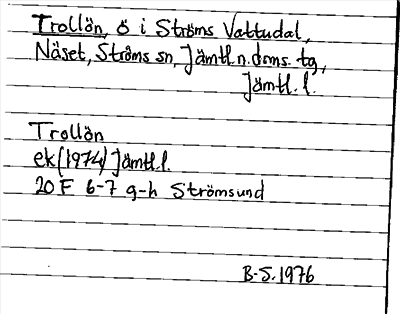 Trollön, ö i Ströms Vattudal,
Näset, Ströms sn, Jämtl.n.doms.tg,
Jämtl.l.
Trollön
ek (1974) Jämtl.l.
20F 6-7 g-h Strömsund
B-S.1976